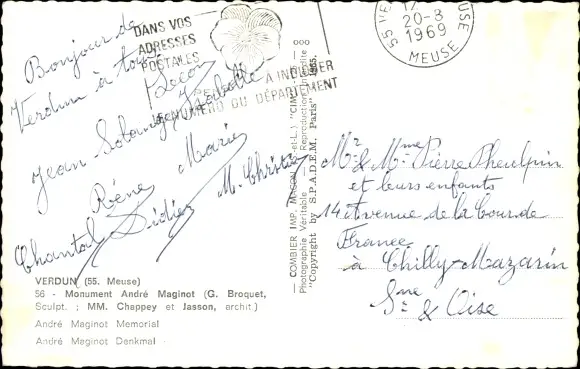 Bonjour de
Verdun à tous
Jean-
Isabelle
Réné Marie
Chantal Didier M. Christine
DANS VOS
ADRESSES
POSTALES
A INDIQUER
NUMERO DU DÉPARTEMENT
55 VERDUN MEUSE
20-8
1969
MEUSE
Mr & Mme Pierre
et leurs enfants
14 Avenue de la Cour de
France
à Chilly-Mazarin
Sne & Oise
ooo
— COMBIER IMP. MACON (S.-et-L.) "CIM" —
Photographie Véritable - Reproduction Interdite
"Copyright by S.P.A.D.E.M. Paris" 1965.
VERDUN (55. Meuse)
56 - Monument André Maginot (G. Broquet,
Sculpt. ; MM. Chappey et Jasson, archit.)
André Maginot Memorial
André Maginot Denkmal